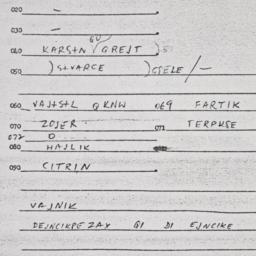 020 –
030 –
GV
040 KARSTN (GREJT )
050 ) STVARCE ) CTELE /–
060 VAJSTL QKNW 069 FARTIK
070 ZOJER 071 TERPUSE
072 O
080 HAJLIK
090 CITRIN
VAJNIK
DEJNCIKPE ZAX GI DI EJNCIKE